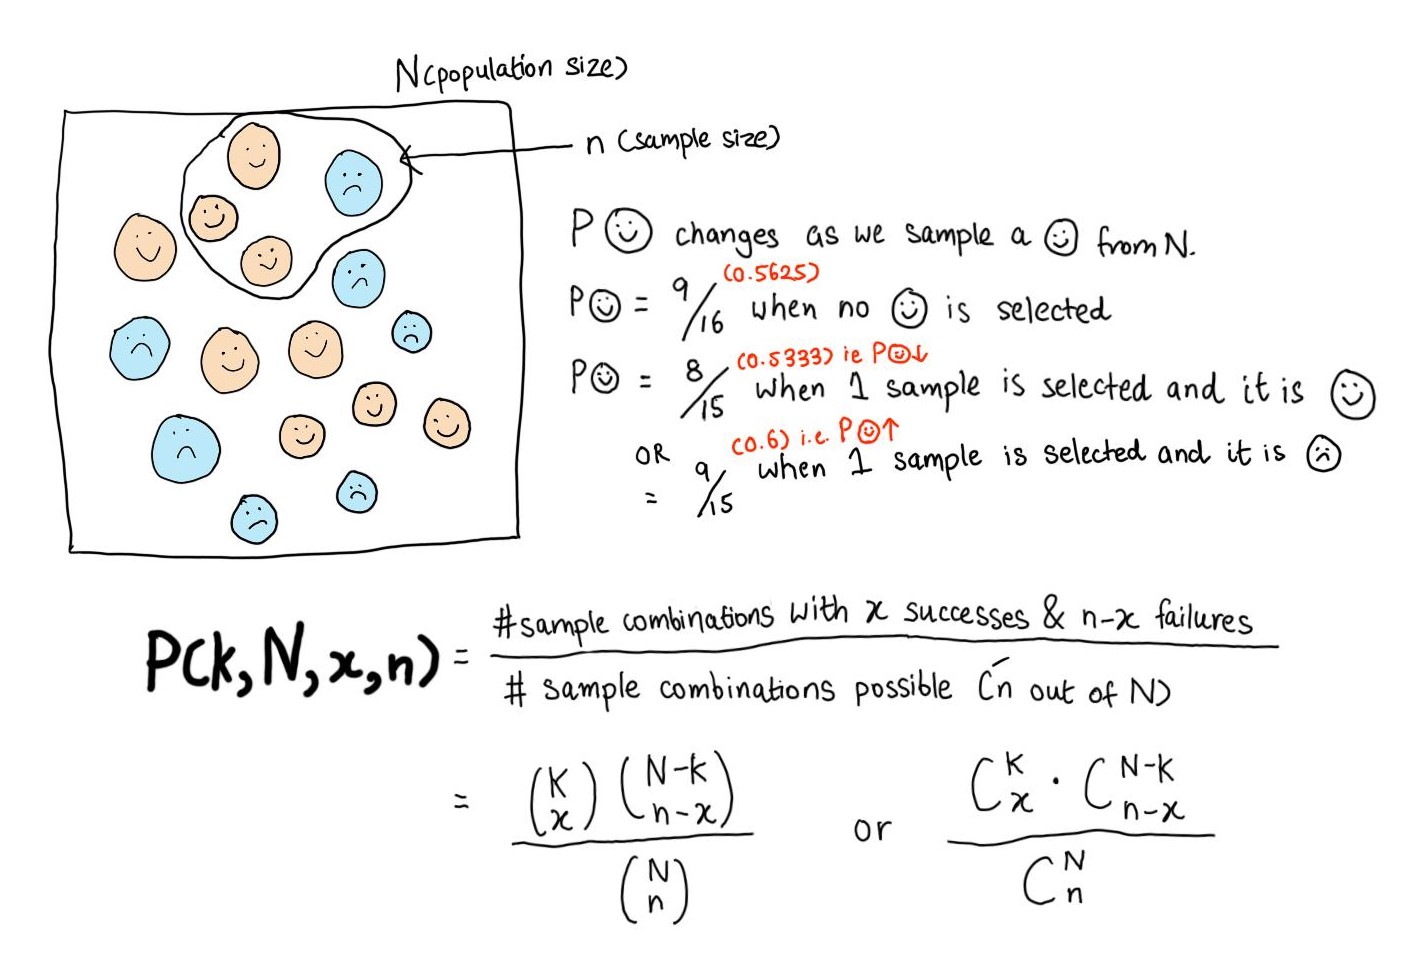 N(population size)
n (sample size)
P☺ changes as we sample a ☺ from N.
(0.5625)
P☺ = 9/16 when no ☺ is selected
(0.5333) ie P☺↓
P☺ = 8/15 when 1 sample is selected and it is ☺
(0.6) i.e. P☺↑
OR
= 9/15 when 1 sample is selected and it is ☹
P(k,N,x,n) = #sample combinations with x successes & n-x failures
# sample combinations possible (n out of N)
= (K x) (N-k n-x)
(N n)
or
C K x · C N-K n-x
C N n